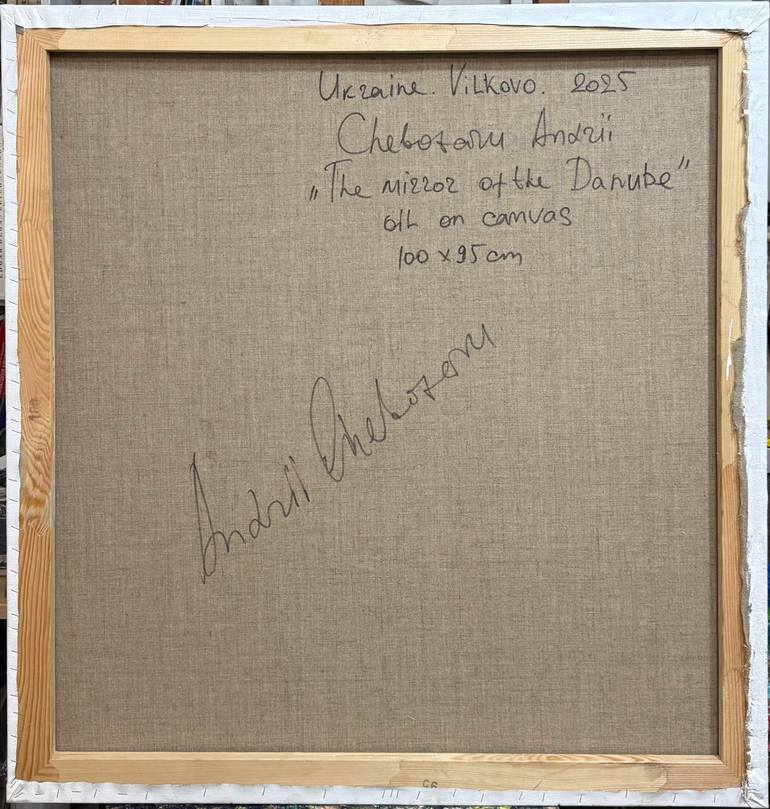 Ukraine. Vilkovo. 2025
Chebotaru Andrii
„The mirror of the Danube"
oil on canvas
100 x 95 cm
Andrii Chebotaru
100
95